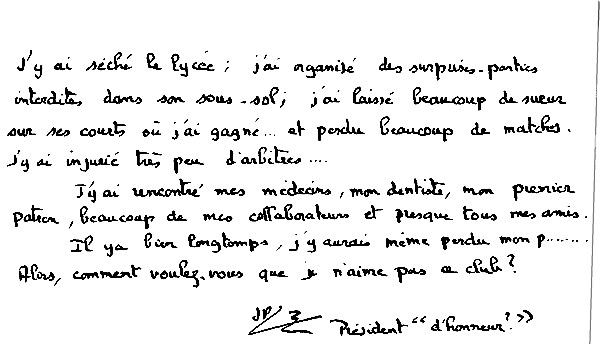 J'y ai séché le lycée ; j'ai organisé des surprises-parties
interdites dans son sous-sol ; j'ai laissé beaucoup de sueur
sur ses courts où j'ai gagné... et perdu beaucoup de matches.
J'y ai injurié très peu d'arbitres....
J'y ai rencontré mes médecins, mon dentiste, mon premier
patron, beaucoup de mes collaborateurs et presque tous mes amis.
Il y a bien longtemps, j'y aurais même perdu mon p.......
Alors, comment voulez-vous que je n'aime pas ce club ?
Président “d'honneur ?”